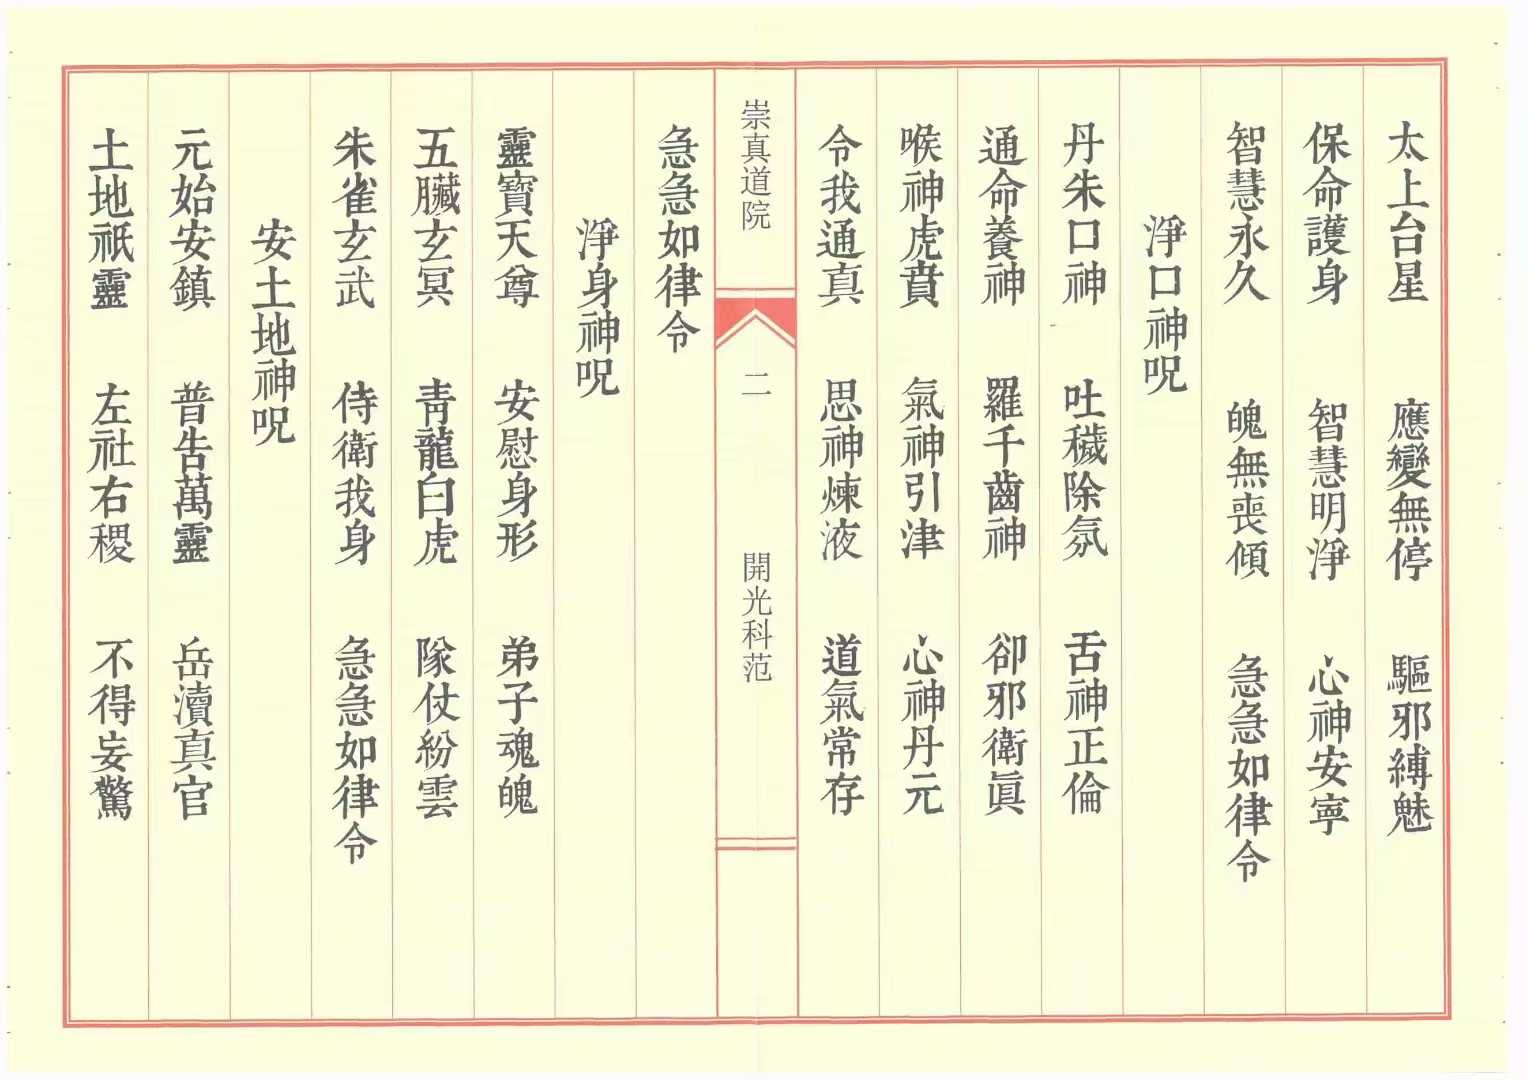 太上台星　應變無停　驅邪縛魅
保命護身　智慧明淨　心神安寧
智慧永久　魄無喪傾　急急如律令
淨口神呪
丹朱口神　吐穢除氛　舌神正倫
通命養神　羅千齒神　卻邪衛眞
喉神虎賁　氣神引津　心神丹元
令我通真　思神煉液　道氣常存
崇真道院　二　開光科范
急急如律令
淨身神呪
靈寶天尊　安慰身形　弟子魂魄
五臟玄冥　青龍白虎　隊仗紛雲
朱雀玄武　侍衛我身　急急如律令
安土地神呪
元始安鎮　普告萬靈　岳瀆真官
土地祇靈　左社右稷　不得妄驚